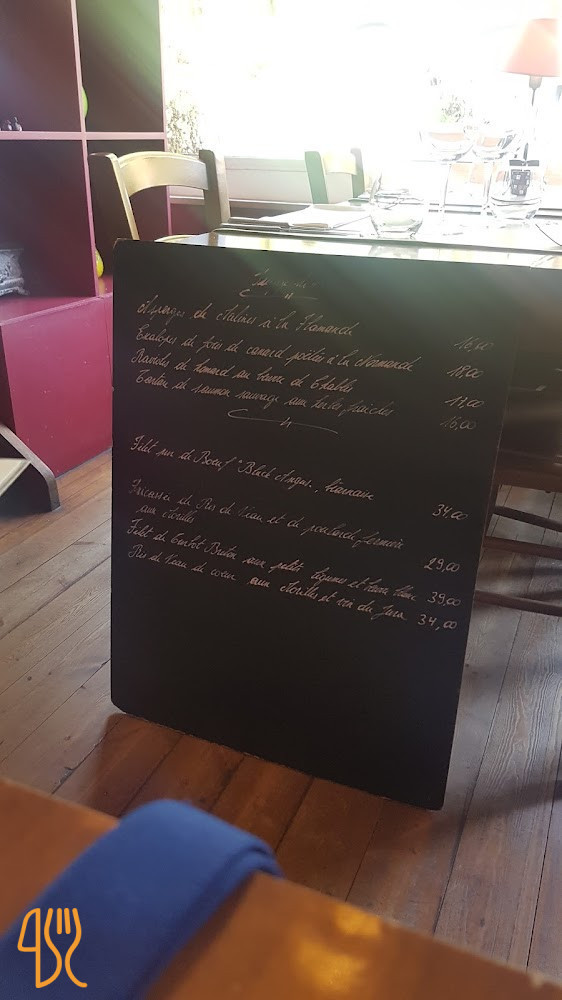 Asperges de Malines à la Flamande 16,00
Escalopes de foies de canard poêlées à la Normande 18,00
Ravioles de homard au beurre de Chablis 17,00
Tartare de saumon sauvage aux herbes fraîches 16,00
Filet pur de Boeuf "Black Angus", béarnaise 34,00
Fricassée de Ris de Veau et de poularde fermière
aux Morilles 29,00
Filet de Turbot Breton aux petits légumes et beurre blanc 39,00
Ris de Veau de coeur aux Morilles et vin du Jura 34,00